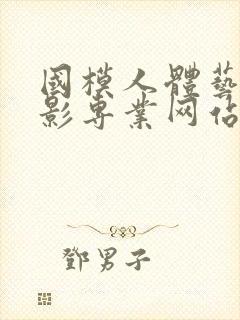 國模人體藝
影專業网佔
鄧男子